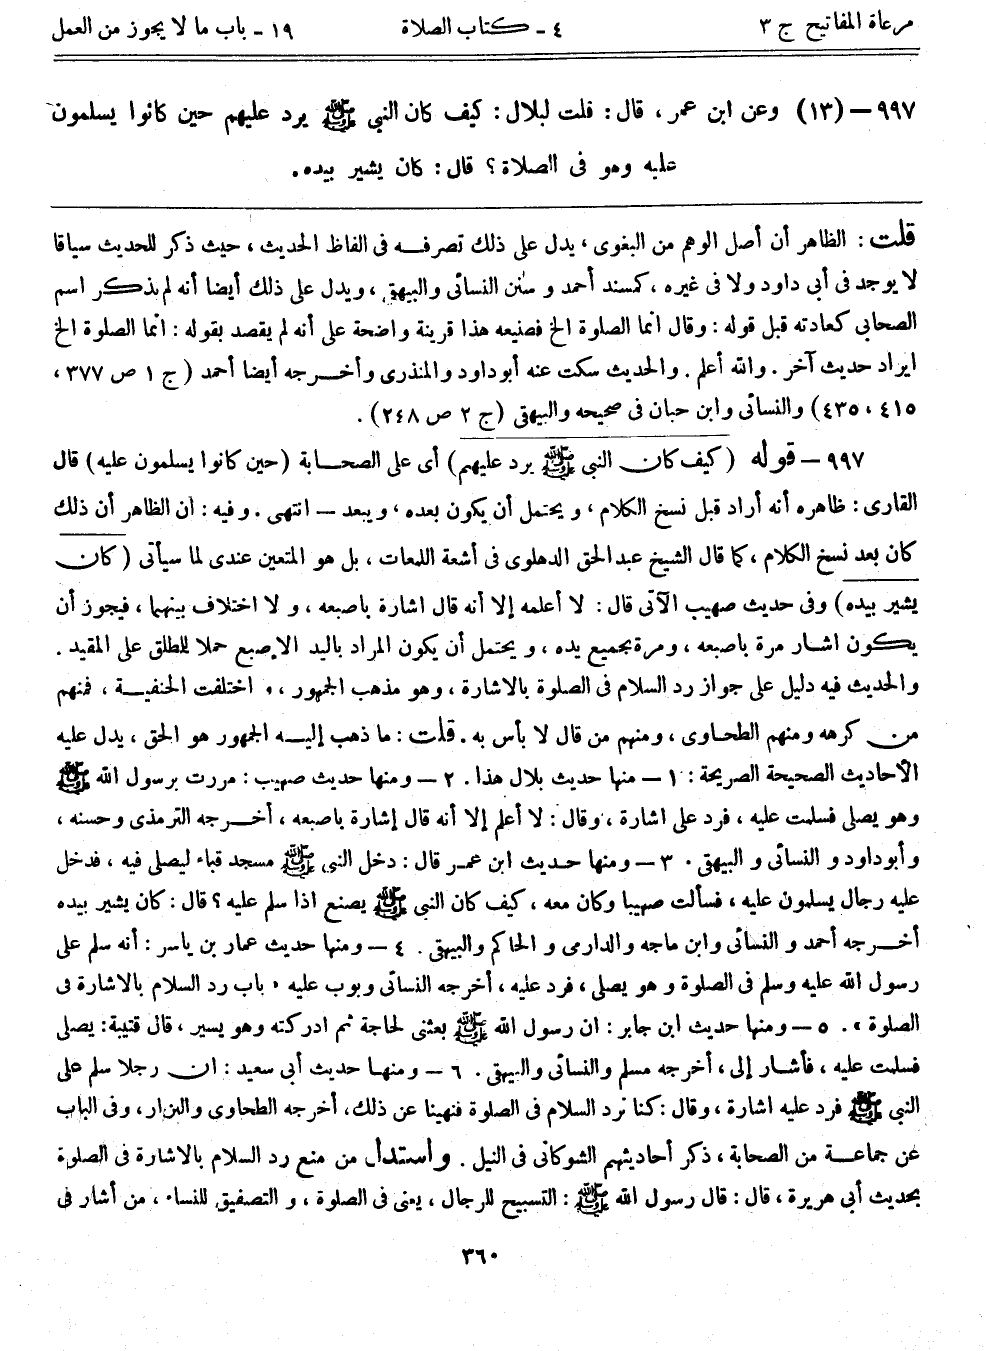 مرعاة المفاتيح ج ٣
٤ ـ كتاب الصلاة
١٩ ـ باب ما لا يجوز من العمل
٩٩٧ ـ (١٣) وعن ابن عمر ، قال : قلت لبلال : كيف كان النبي ﷺ يرد عليهم حين كانوا يسلمون
عليه وهو فى الصلاة ؟ قال : كان يشير بيده .
قلت : الظاهر أن أصل الوهم من البغوى ، يدل على ذلك تصرفـه فى الفاظ الحديث ، حيث ذكر للحديث سياقا
لا يوجد فى أبي داود ولا فى غيره ، كمسند أحمد و سنن النسائى والبيهقى ، ويدل على ذلك أيضا أنه لم يذكر اسم
الصحابى كعادته قبل قوله : وقال انما الصلوة الخ فصنيعه هذا قرينة واضحة على أنه لم يقصد بقوله : انما الصلوة الخ
ايراد حديث آخر . والله أعلم . والحديث سكت عنه أبو داود والمنذرى وأخرجه أيضا أحمد ( ج ١ ص ٣٧٧ ،
٤١٥ ، ٤٣٥) والنسائى وابن حبان فى صحيحه والبيهقى (ج ٢ ص ٢٤٨) .
٩٩٧ ـ قوله ( كيف كان النبي ﷺ يرد عليهم ) أى على الصحابة ( حين كانوا يسلمون عليه ) قال
القارى : ظاهره أنه أراد قبل نسخ الكلام ، و يحتمل أن يكون بعده ، ويبعد ـ انتهى . وفيه : ان الظاهر أن ذلك
كان بعد نسخ الكلام ، كما قال الشيخ عبد الحق الدهلوى فى أشعة اللمعات ، بل هو المتعين عندى لما سيأتى ( كان
يشير بيده ) وفى حديث صهيب الآتى قال : لا أعلمه إلا أنه قال اشارة باصبعه ، و لا اختلاف بينهما ، فيجوز أن
يكون اشار مرة باصبعه ، ومرة بجميع يده ، و يحتمل أن يكون المراد باليد الاصبع حملا للمطلق على المقيد .
والحديث فيه دليل على جواز رد السلام فى الصلوة بالاشارة ، وهو مذهب الجمهور ، و اختلفت الحنفية ، فمنهم
من كرهه ومنهم الطحاوى ، ومنهم من قال لا بأس به . قلت : ما ذهب إليه الجمهور هو الحق ، يدل عليه
الأحاديث الصحيحة الصريحة : ١ ـ منها حديث بلال هذا . ٢ ـ ومنها حديث صهيب : مررت برسول الله ﷺ
وهو يصلى فسلمت عليه ، فرد على اشارة ، وقال : لا أعلم إلا أنه قال إشارة باصبعه ، أخرجه الترمذى وحسنه ،
و أبو داود و النسائى و البيهقى . ٣ ـ ومنها حديث ابن عمر قال : دخل النبي ﷺ مسجد قباء ليصلى فيه ، فدخل
عليه رجال يسلمون عليه ، فسألت صهيبا وكان معه ، كيف كان النبي ﷺ يصنع اذا سلم عليه ؟ قال : كان يشير بيده
أخرجه أحمد و النسائى وابن ماجه والدارمى و الحاكم والبيهقى . ٤ ـ ومنها حديث عمار بن ياسر : أنه سلم على
رسول الله عليه وسلم فى الصلوة و هو يصلى ، فرد عليه ، أخرجه النسائى وبوب عليه « باب رد السلام بالاشارة فى
الصلوة » . ٥ ـ ومنها حديث ابن جابر : ان رسول الله ﷺ بعثنى لحاجة ثم ادركته وهو يسير ، قال قتيبة : يصلى
فسلمت عليه ، فأشار إلى ، أخرجه مسلم والنسائى والبيهقى . ٦ ـ ومنها حديث أبى سعيد : ان رجلا سلم على
النبي ﷺ فرد عليه اشارة ، وقال : كنا نرد السلام فى الصلوة فنهينا عن ذلك ، أخرجه الطحاوى والبزار ، وفى الباب
عن جماعة من الصحابة ، ذكر أحاديثهم الشوكانى فى النيل . وأستدل من منع رد السلام بالاشارة فى الصلوة
بحديث أبى هريرة ، قال : قال رسول الله ﷺ : التسبيح للرجال ، يعنى فى الصلوة ، و التصفيق للنساء ، من أشار فى
٣٦٠